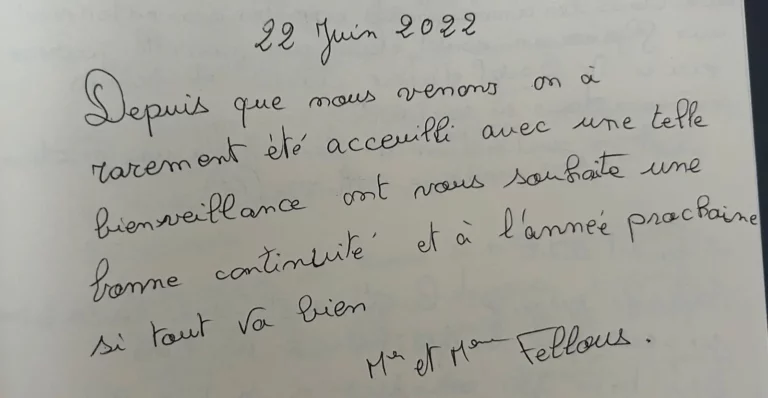 22 Juin 2022
Depuis que nous venons on à
rarement été acceuilli avec une telle
bienveillance ont vous souhaite une
bonne continuité et à l'anneé prochaine
si tout va bien
Mr et Mme Fellous.